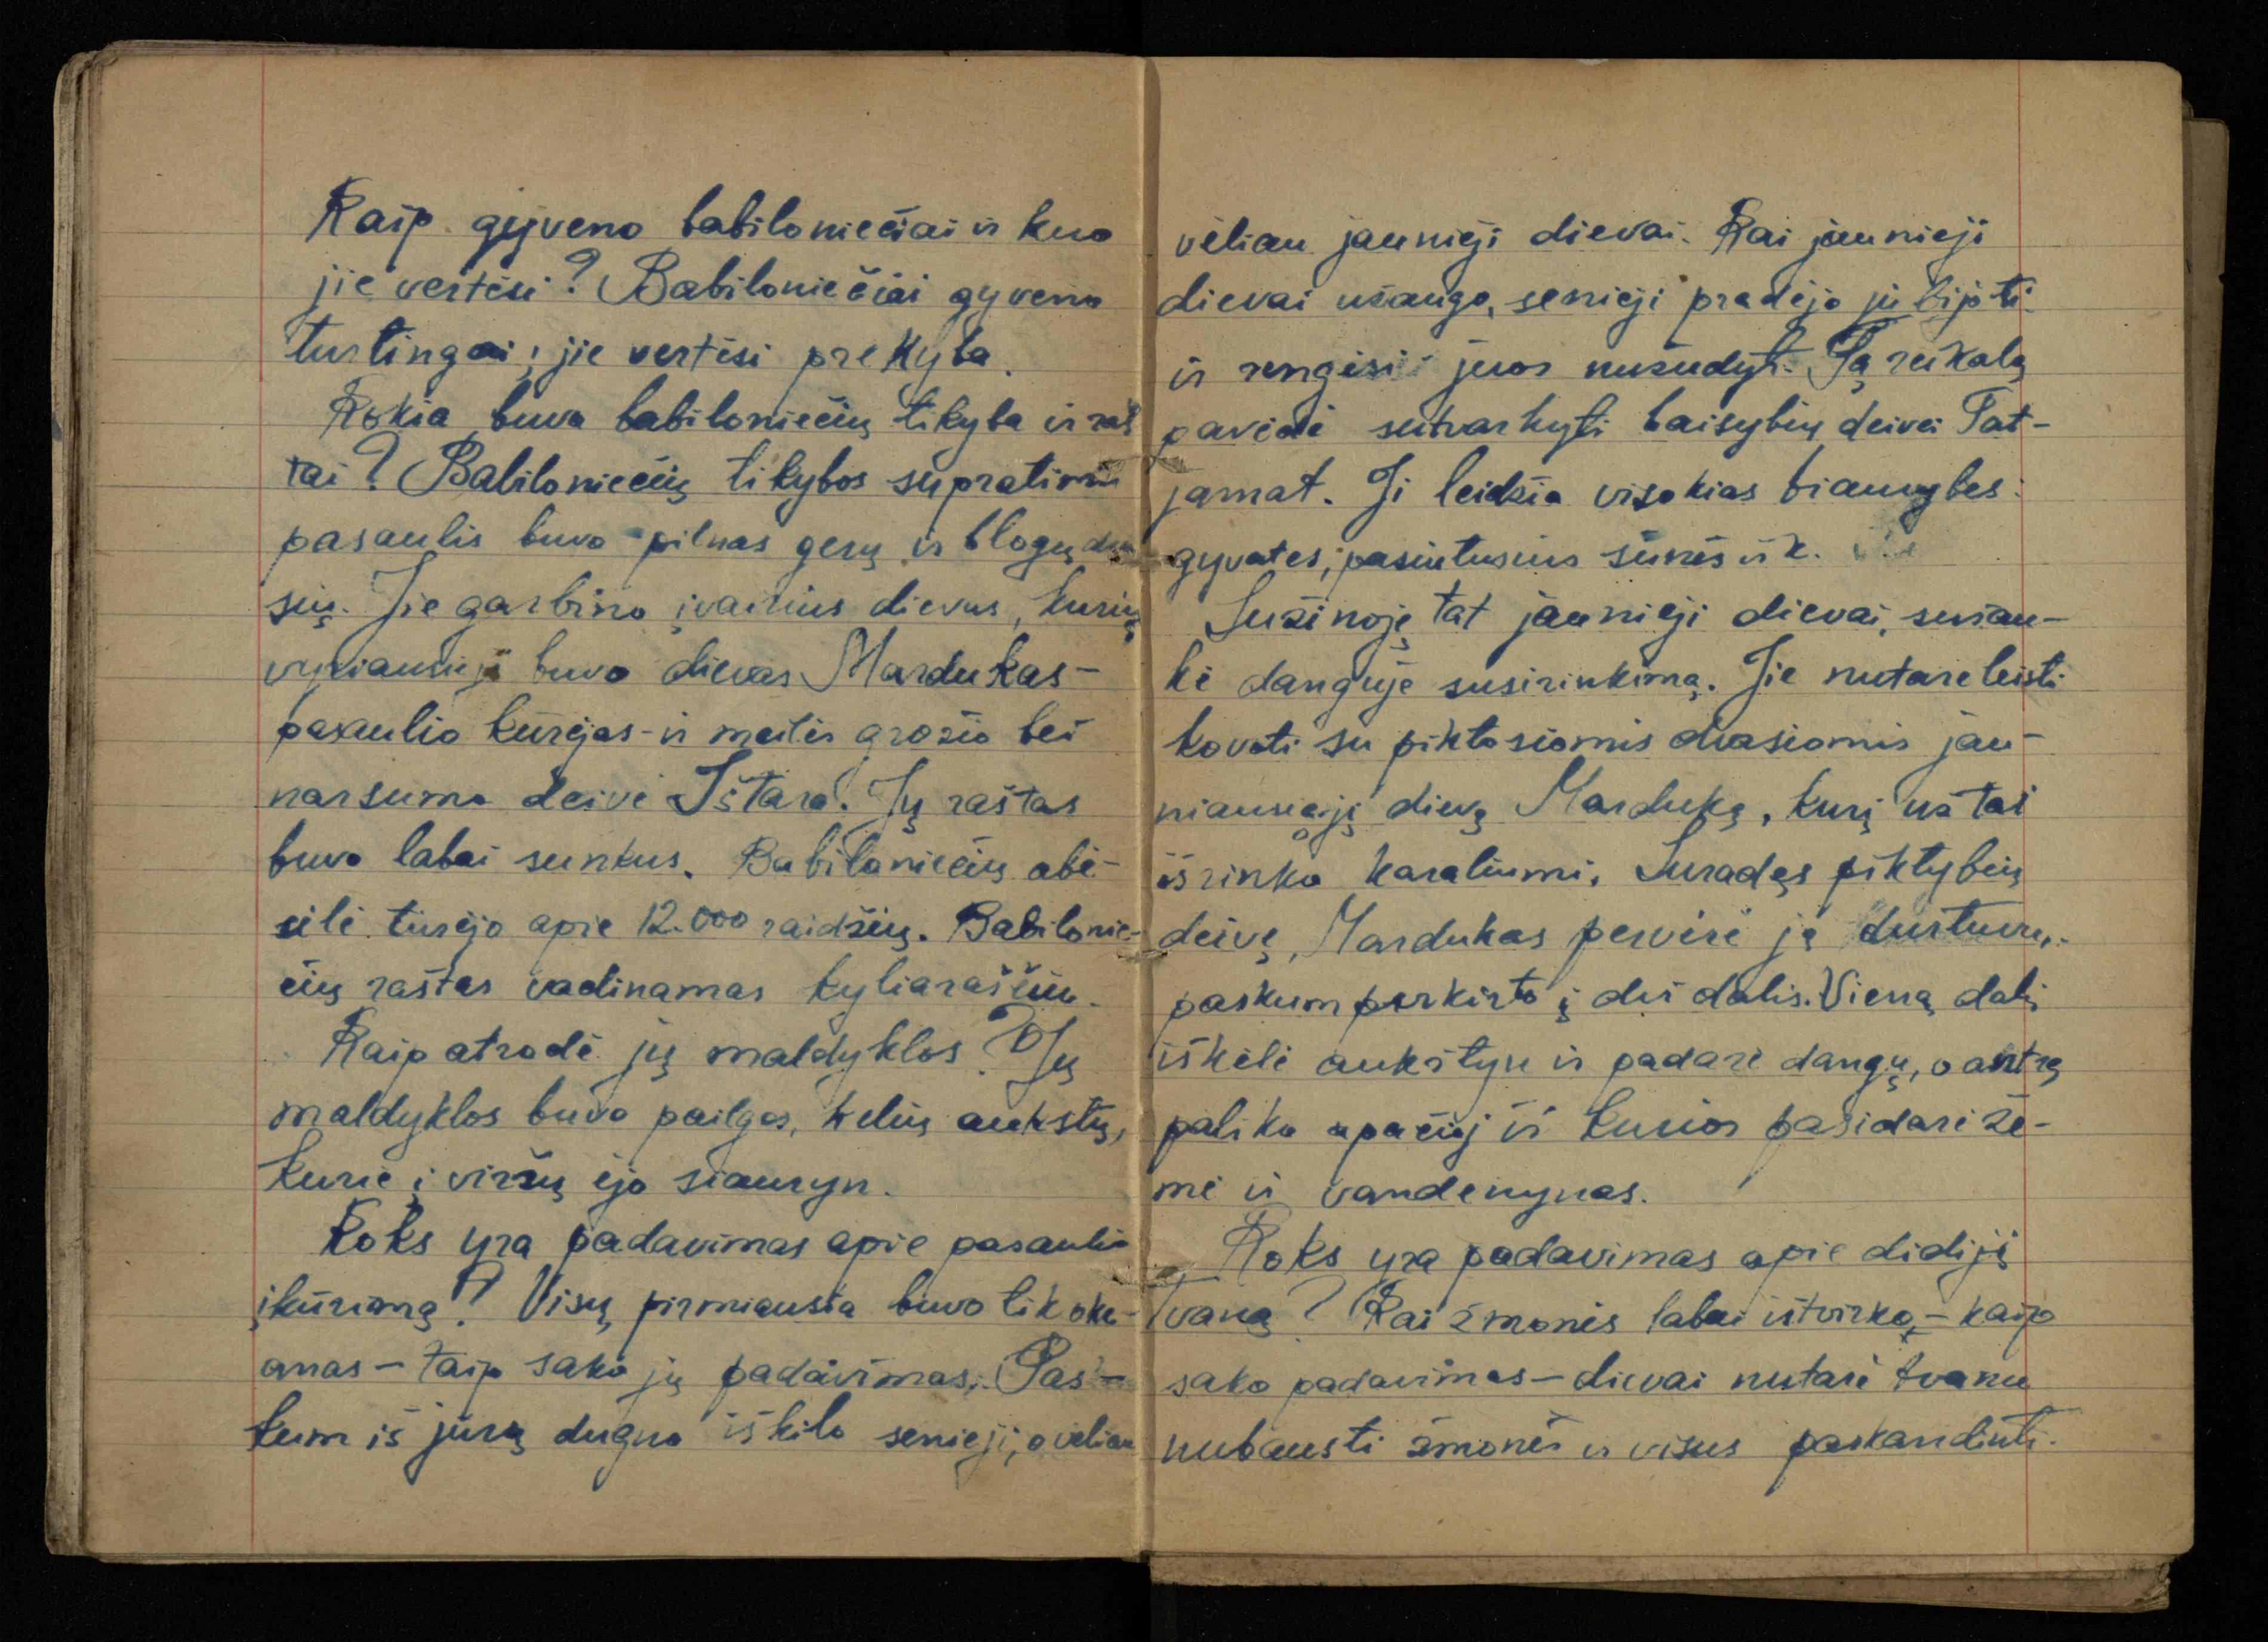 Kaip gyveno babiloniečiai ir kuo
jie vertėsi? Babiloniečiai gyveno
turtingai; jie vertėsi prekyba.
Kokia buvo babiloniečių tikyba ir raš
tai? Babiloniečių tikybos supratimu
pasaulis buvo pilnas gerų ir blogų dva
sių. Jie garbino įvairius dievus, kurių
vyriausieji buvo dievas Mardukas-
pasaulio kūrėjas-ir meilės grožio bei
narsumo deivė Ištara. Jų raštas
buvo labai sunkus. Babiloniečių abė-
cėlė turėjo apie 12.000 raidžių. Babilonie-
čių raštas vadinamas kyliaraščiu.
Kaip atrodė jų maldyklos? Jų
maldyklos buvo pailgos, kelių aukštų,
kurie į viršų ėjo siauryn.
Koks yra padavimas apie pasaulio
įkūrimą? Visų pirmiausia buvo tik oke-
anas – taip sako jų padavimas. Pas-
kum iš jūrų dugno iškilo senieji, o vėliau
vėliau jaunieji dievai. Kai jaunieji
dievai užaugo, senieji pradėjo jų bijoti
ir rengėsi juos nužudyt. Tą reikalą
pavedė sutvarkyti baisybių deivei Tat-
jamat. Ji leidžia visokias biaurybes:
gyvates, pasiutusius šunės ir k.
Sužinoję tat jaunieji dievai, sušau-
kė danguje susirinkimą. Jie nutarė leisti
kovoti su piktosiomis dvasiomis jau-
niausiąjį dievą Marduką, kurį už tai
išrinko karaliumi. Suradęs piktybių
deivę, Mardukas pervėrė ją durtuvu,
paskum perkirto į dvi dalis. Vieną dalį
iškėlė aukštyn ir padarė dangų, o antrą
paliko apačioj iš kurios pasidarė že-
mė ir vandenynas.
Koks yra padavimas apie didijį
tvaną? Kai žmonės labai ištvirko, – kaip
sako padavimas – dievai nutarė tvanu
nubausti žmonės ir visus paskandinti.